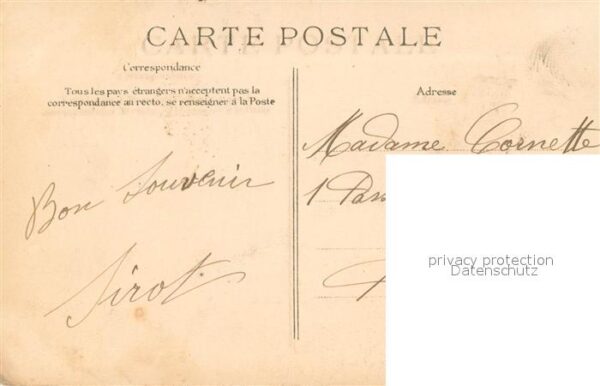 CARTE POSTALE
Correspondance
Tous les pays étrangers n'acceptent pas la
correspondance au recto, se renseigner à la Poste
Bon Souvenir
Sirot
Adresse
Madame Cornette
1
privacy protection
Datenschutz